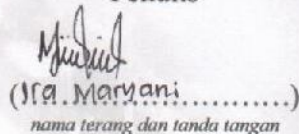 (Ira Maryani..............)
nama terang dan tanda tangan